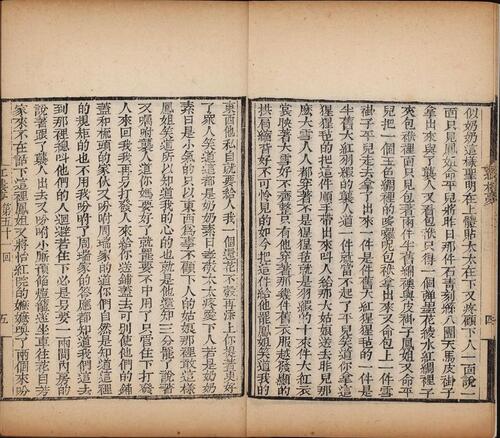 似奶奶這樣聖明在上體貼太太在下又疼顧下人一面說一
面只見鳳姐命平兒將昨日那件石青刻絲八團天馬皮褂子
拿出來與了襲人又看包袱只得一個彈墨花綾水紅綢裡子
夾包袱裡面只包着兩件半舊綿襖與皮褂子鳳姐又命平
兒把一個玉色綢裡的哆囉呢包袱拿出來又命包上一件雪
褂子平兒走去拿了出來一件是件舊大紅猩猩毡的一件是
半舊大紅羽緞的襲人道一件就當不起了平兒笑道你拿這
猩猩毡的把這件順手帶出來叫人給那大姑娘送去昨兒那
麼大雪人人都穿着不是猩猩毡就是羽緞的十來件大紅衣
裳映着大雪好不齊整只有他穿着那幾件舊衣服越發顯的
拱肩縮背好不可怜見的如今把這件給他罷鳳姐笑道我的
東西他私自就要給人我一個還花不彀再添上你提着更好
了衆人笑道這都是奶奶素日孝敬太太疼愛下人若是奶奶
素日是小氣的只以東西為事不顧下人的姑娘那裡敢這樣
鳳姐笑道所以知道我的心的也就是他還知三分罷了說着
又囑咐襲人道你媽要好了就罷要不中用了只管住下打發
人來回我我再另打發人來給你送鋪蓋去可別使他們的鋪
蓋和梳頭的家伙又吩咐了周瑞家的道你們自然是知道這裡
的規矩的也不用我吩咐了周瑞家的答應都知道我們這去
到那裡總叫他們的人迴避若住下必是只要一兩間內房的
說着跟了襲人出去又吩咐小廝預備燈籠遂坐車往花自芳
家來不在話下這裡鳳姐又將怡紅院的嬤嬤喚了兩個來吩
紅樓夢 第五十一回 五